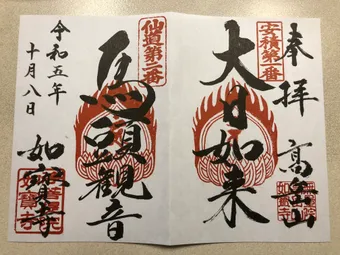 奉拝
高岳山
安積第一番
大日如来
仙道第二番
馬頭観音
令和五年
十月八日
如寳寺
如寳寺